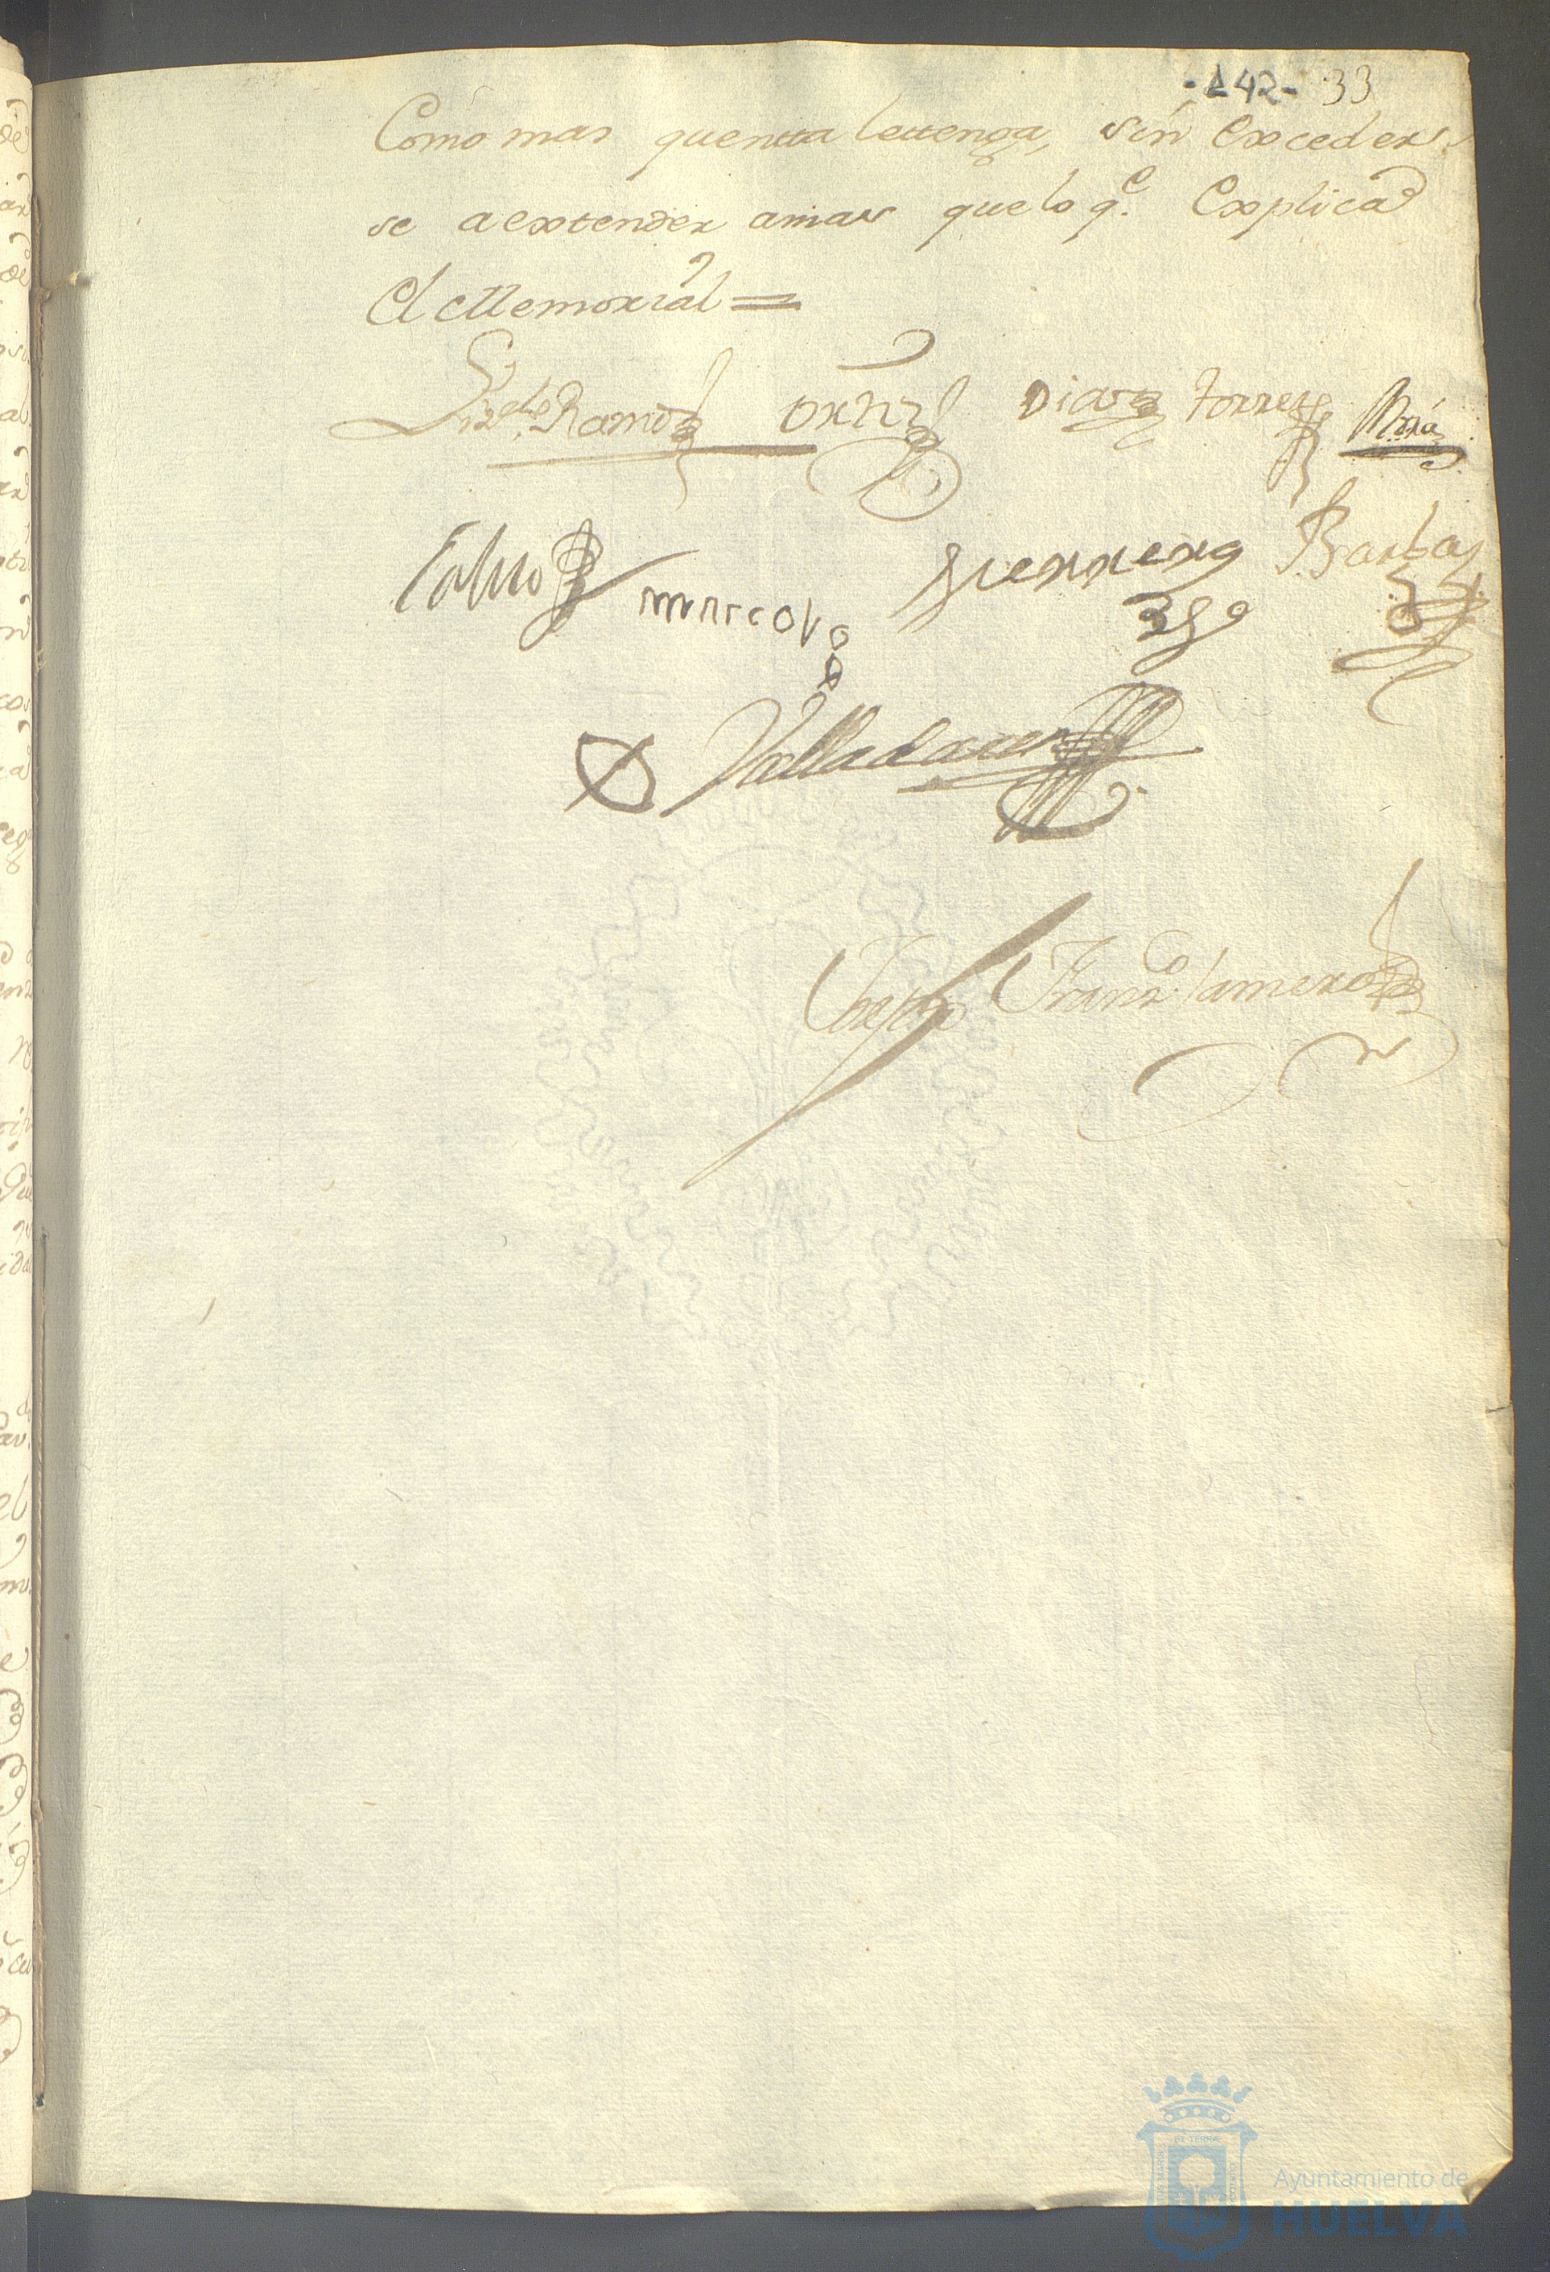 -142- 33
Como mas quentta lettenga, sin Exceder
se aextender amas que lo q.e Explica
El Memorial =
Liz.do Ramos Ortiz Diaz Torres
marcolo Guerrero Barba
Valladares
Joseph Fran.co Camero
Ayuntamiento de
HUELVA